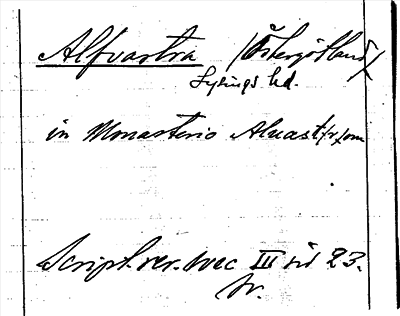 Alfvastra (Östergötland)
Lysings hd.
in Monasterio Aluast/r/om
Script. rer. svec III sid 23.
tr.